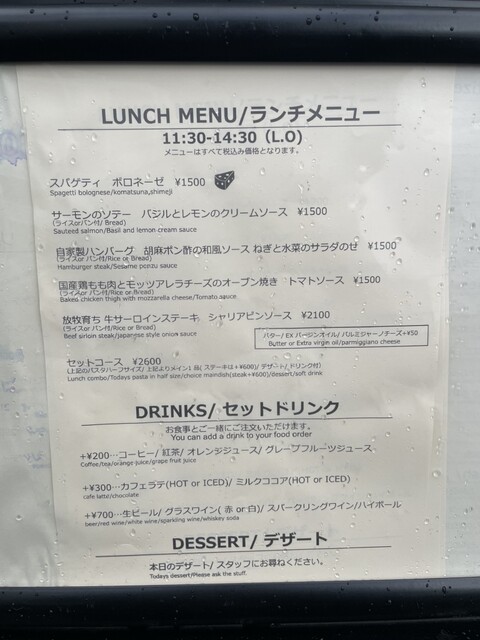 LUNCH MENU/ランチメニュー
11:30-14:30 (L.O)
メニューはすべて税込み価格となります。
スパゲティ ボロネーゼ ¥1500
Spagetti bolognese/komatsuna,shimeji
サーモンのソテー バジルとレモンのクリームソース ¥1500
(ライスorパン付/Rice or Bread)
Sauteed salmon/Basil and lemon cream sauce
自家製ハンバーグ 胡麻ポン酢の和風ソース ねぎと水菜のサラダのせ ¥1500
(ライスorパン付/Rice or Bread)
Hamburger steak/Sesame ponzu sauce
国産鶏もも肉とモッツアレラチーズのオーブン焼き トマトソース ¥1500
(ライスorパン付/Rice or Bread)
Baked chicken thigh with mozzarella cheese/Tomato sauce
放牧育ち 牛サーロインステーキ シャリアピンソース ¥2100
(ライスorパン付/Rice or Bread)
Beef sirloin steak/japanese style onion sauce
バター/ EXバージンオイル/ パルミジャーノチーズ+¥50
Butter or Extra virgin oil/parmiggiano cheese
セットコース ¥2600
(上記のパスタハーフサイズ/ 上記よりメイン1品( ステーキは+¥600)/ デザート/ ドリンク付)
Lunch combo/Todays pasta in half size/choice maindish(steak+¥600)/dessert/soft drink
DRINKS/ セットドリンク
お食事とご一緒にご注文いただけます。
You can add a drink to your food order
+¥200…コーヒー/ 紅茶/ オレンジジュース/ グレープフルーツジュース
Coffee/tea/orange juice/grape fruit juice
+¥300…カフェラテ(HOT or ICED)/ ミルクココア(HOT or ICED)
cafe latte/chocolate
+¥700…生ビール/ グラスワイン( 赤 or 白)/ スパークリングワイン/ハイボール
beer/red wine/white wine/sparkling wine/whiskey soda
DESSERT/ デザート
本日のデザート/ スタッフにお尋ねください。
Todays dessert/Please ask the stuff.